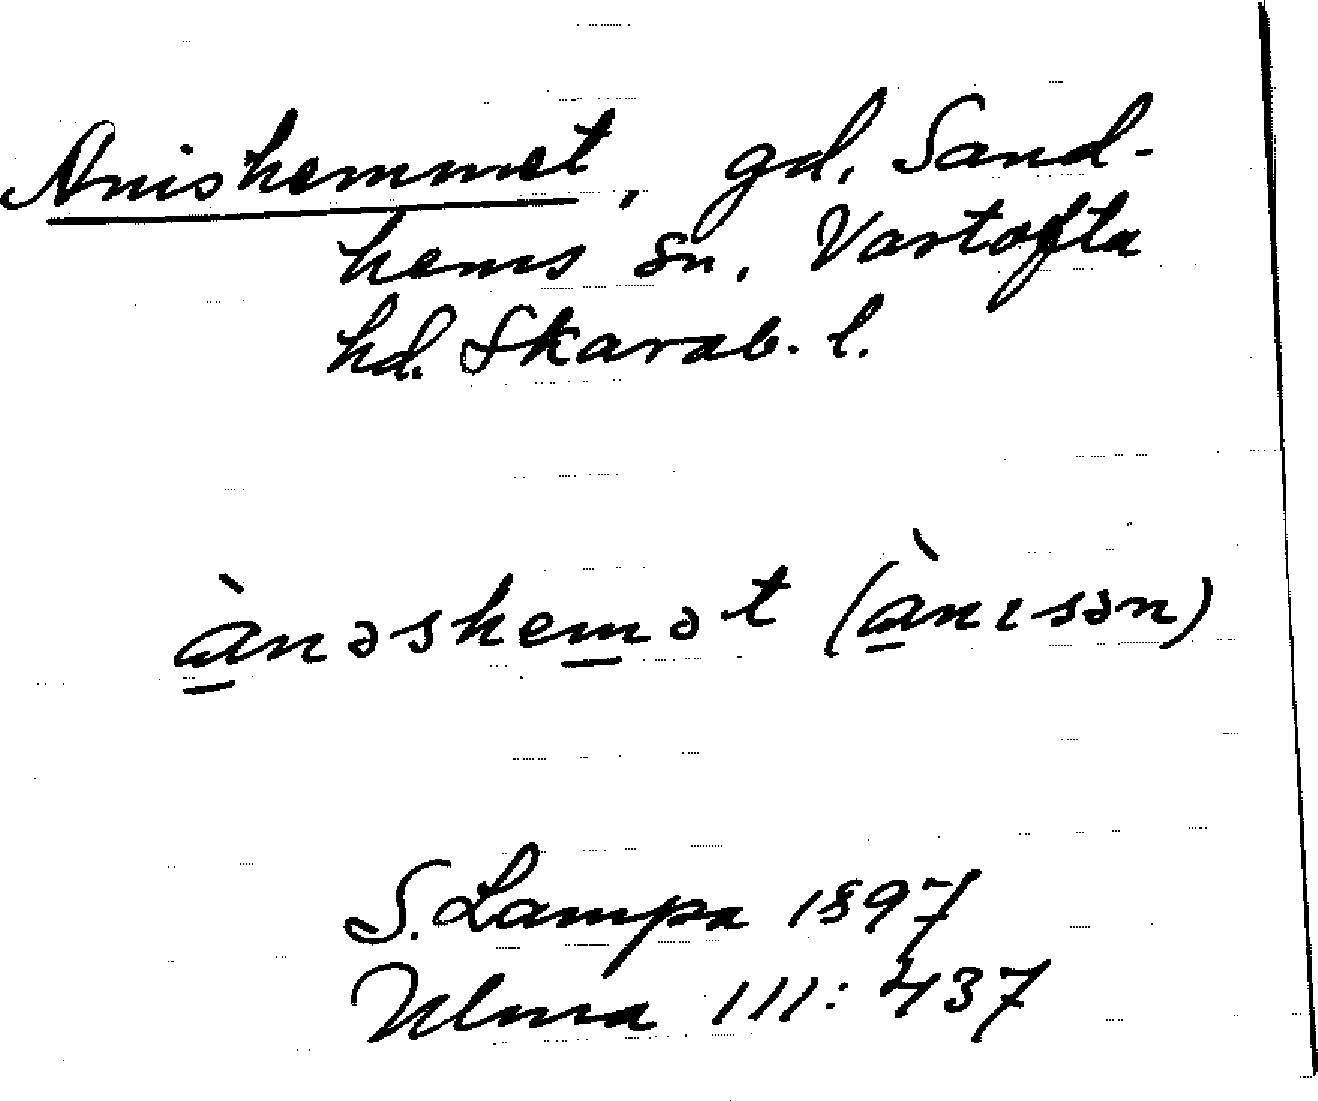 Anishemmet, gd, Sand-
hems sn, Vartofta
hd. Skarab. l.
ànəshemət (ànısən)
S. Lampa 1897
Ulma 111: 437